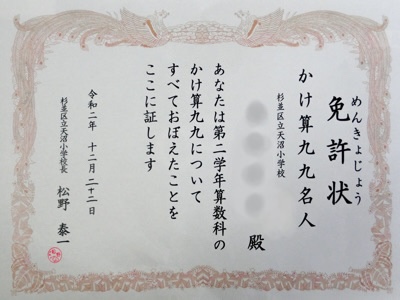 めんきょじょう
免許状
かけ算九九名人
杉並区立天沼小学校
殿
あなたは第二学年算数科の
かけ算九九について
すべておぼえたことを
ここに証します
令和二年 十二月 二十二日
杉並区立天沼小学校長
松野 泰一